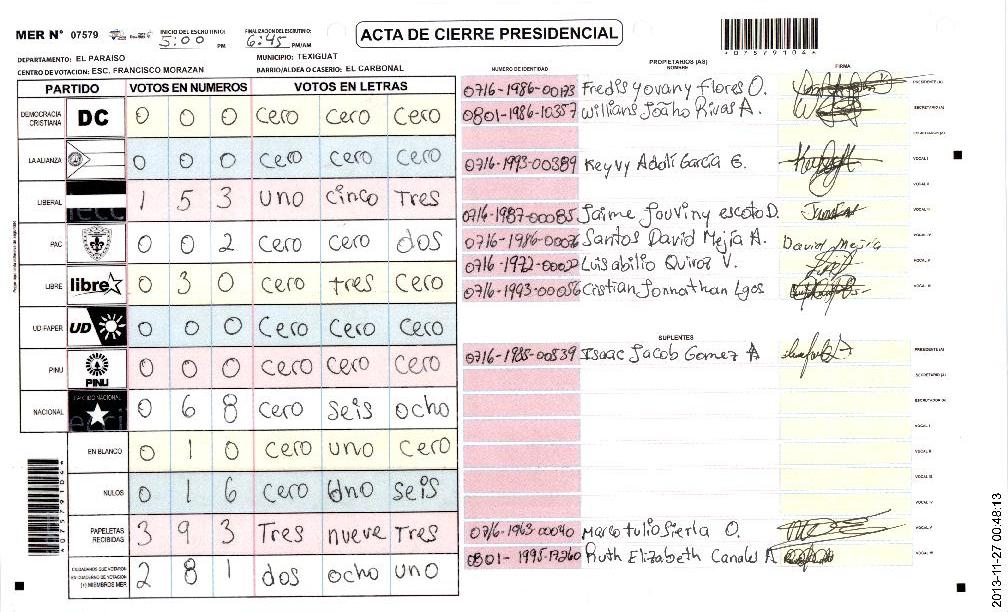 MER N° 07579 INICIO DEL ESCRUTINIO: 5:00 PM FINALIZACION DEL ESCRUTINIO: 6:45 PM/AM
ACTA DE CIERRE PRESIDENCIAL
*07579104*
DEPARTAMENTO: EL PARAISO MUNICIPIO: TEXIGUAT
CENTRO DE VOTACION: ESC. FRANCISCO MORAZAN BARRIO/ALDEA O CASERIO: EL CARBONAL
PARTIDO VOTOS EN NUMEROS VOTOS EN LETRAS
DEMOCRACIA CRISTIANA DC 0 0 0 Cero Cero Cero
LA ALIANZA 0 0 0 Cero Cero Cero
LIBERAL 1 5 3 uno cinco Tres
PAC 0 0 2 Cero Cero dos
LIBRE libre 0 3 0 Cero tres Cero
UD FAPER UD 0 0 0 Cero Cero Cero
PINU PINU 0 0 0 Cero Cero Cero
NACIONAL PARTIDO NACIONAL 0 6 8 Cero seis ocho
EN BLANCO 0 1 0 Cero uno Cero
NULOS 0 1 6 Cero Uno seis
PAPELETAS RECIBIDAS 3 9 3 Tres nueve Tres
CIUDADANOS QUE VOTARON EN CUADERNO DE VOTACION (+) MIEMBROS MER 2 8 1 dos ocho uno
*07579104*
NUMERO DE IDENTIDAD PROPIETARIOS (AS) NOMBRE FIRMA
0716-1986-00173 Fredis Yovany Flores O. PRESIDENTE (A)
0801-1986-10357 Willians Joaho Rivas A. SECRETARIO (A)
ESCRUTADOR (A)
0716-1993-00389 Keyvy Adolí García G. VOCAL I
VOCAL II
0716-1987-00085 Jaime Jouviny escoto D. VOCAL III
0716-1986-00076 Santos David Mejía A. David Mejía VOCAL IV
0716-1972-00022 Luis abilio Quiroz V. VOCAL V
0716-1993-00056 Cristian Jonnathan VOCAL VI
SUPLENTES
0716-1985-00539 Isaac Jacob Gomez A PRESIDENTE (A)
SECRETARIO (A)
ESCRUTADOR (A)
VOCAL I
VOCAL II
VOCAL III
VOCAL IV
0716-1963-00040 Marco tulio Sierra O. VOCAL V
0801-1995-17260 Ruth Elizabeth Canales A VOCAL VI
2013-11-27 00:48:13